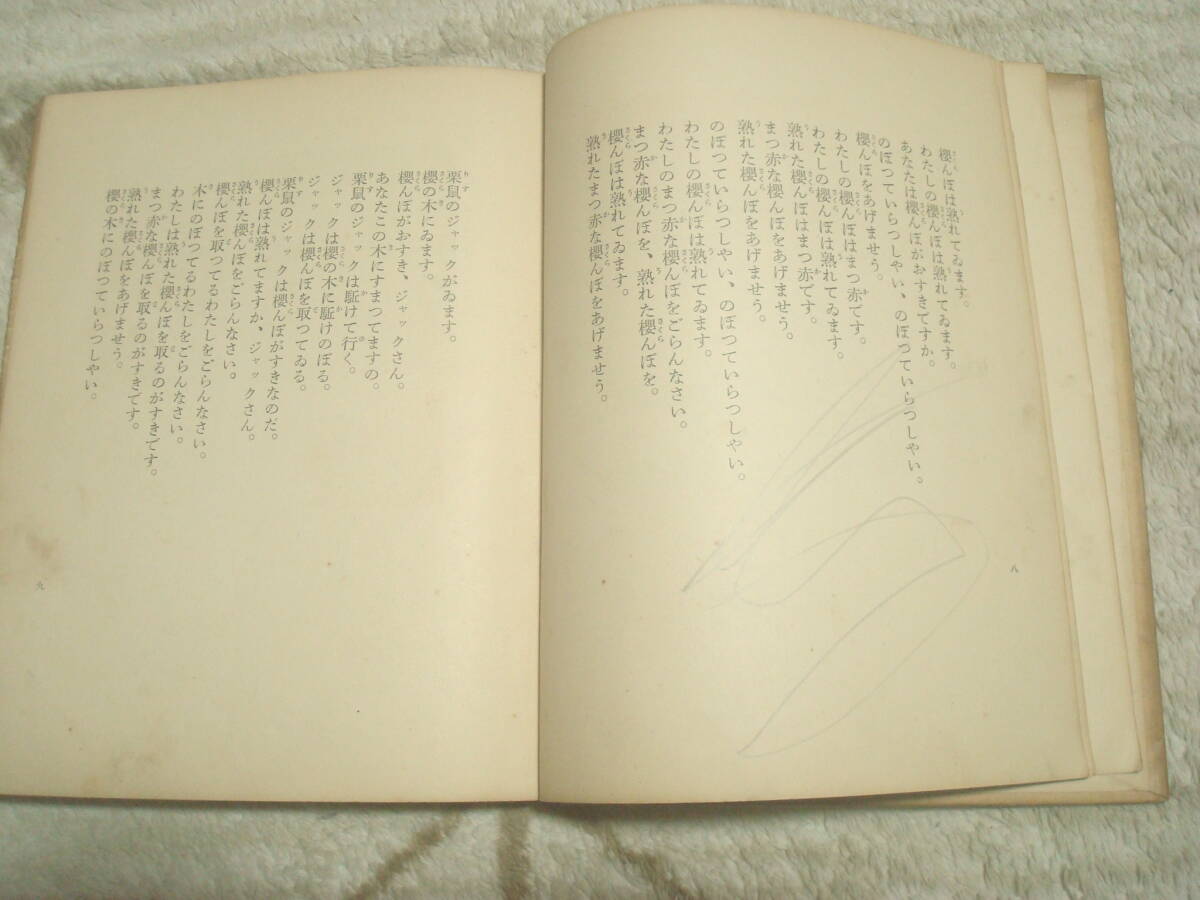 櫻んぼは熟れてゐます。
わたしの櫻んぼは熟れてゐます。
あなたは櫻んぼがおすきですか。
のぼつていらつしやい、のぼつていらつしやい。
櫻んぼをあげませう。
わたしの櫻んぼはまつ赤です。
わたしの櫻んぼは熟れてゐます。
熟れた櫻んぼはまつ赤です。
まつ赤な櫻んぼをあげませう。
熟れた櫻んぼをあげませう。
のぼつていらつしやい、のぼつていらつしやい。
わたしの櫻んぼは熟れてゐます。
わたしのまつ赤な櫻んぼをごらんなさい。
まつ赤な櫻んぼを、熟れた櫻んぼを。
櫻んぼは熟れてゐます。
熟れたまつ赤な櫻んぼをあげませう。
八
栗鼠のジャックがゐます。
櫻の木にゐます。
櫻んぼがおすき、ジャックさん。
あなたこの木にすまつてますの。
栗鼠のジャックは駈けて行く。
ジャックは櫻の木に駈けのぼる。
ジャックは櫻んぼを取つてゐる。
栗鼠のジャックは櫻んぼがすきなのだ。
櫻んぼは熟れてますか、ジャックさん。
熟れた櫻んぼをごらんなさい。
櫻んぼを取つてるわたしをごらんなさい。
木にのぼつてるわたしをごらんなさい。
わたしは熟れた櫻んぼを取るのがすきです。
まつ赤な櫻んぼを取るのがすきです。
熟れた櫻んぼをあげませう。
櫻の木にのぼつていらつしやい。
九